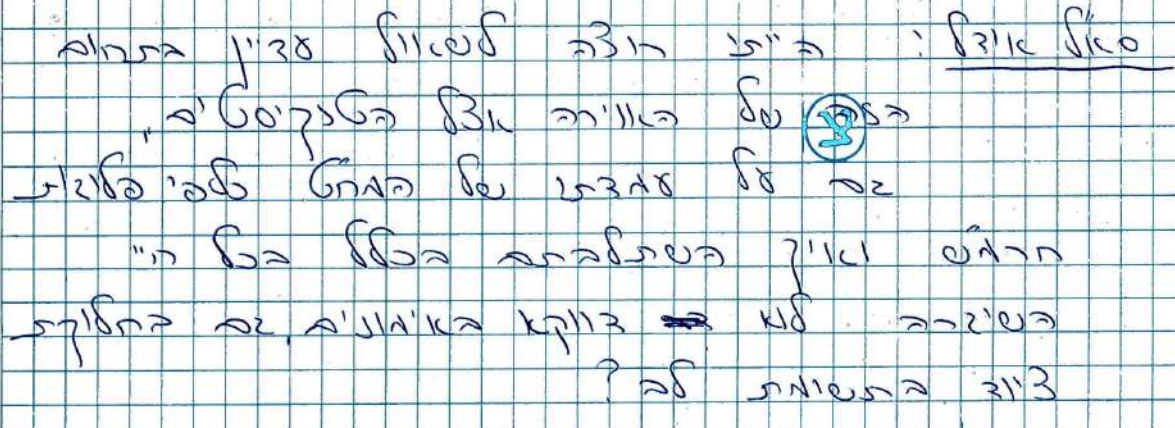 סא"ל אודל: הייתי רוצה לשאול עדיין בתחום
הזה של האווירה אצל הטנקיסטים,
גם על עמדתו של המח"ט כלפי פלוגות
חרמ"ש ואיך השתלבתם בכלל בכל
השיגרה לא דווקא באימונים, גם בחלוקת
ציוד בתשומת לב?